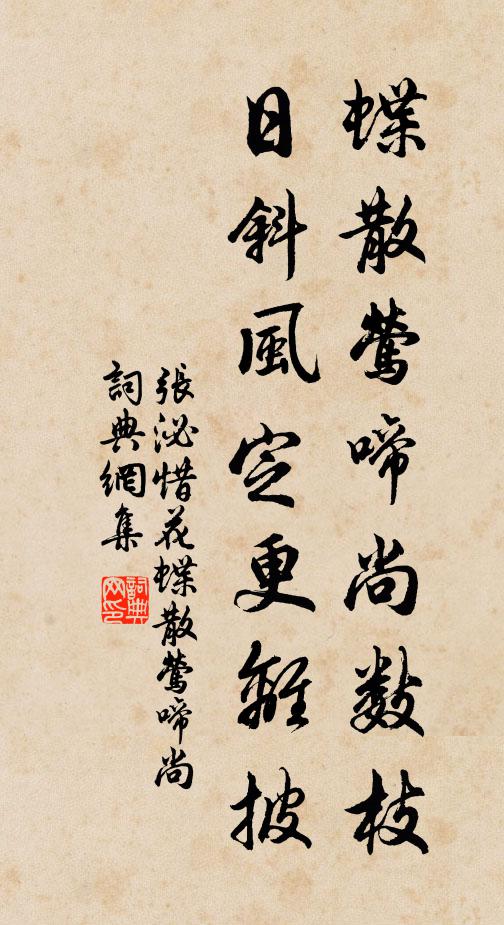 蝶散鶯啼尚數枝
日斜風定更離披
張泌惜花蝶散鶯啼尚
詞典網集
詞典網印